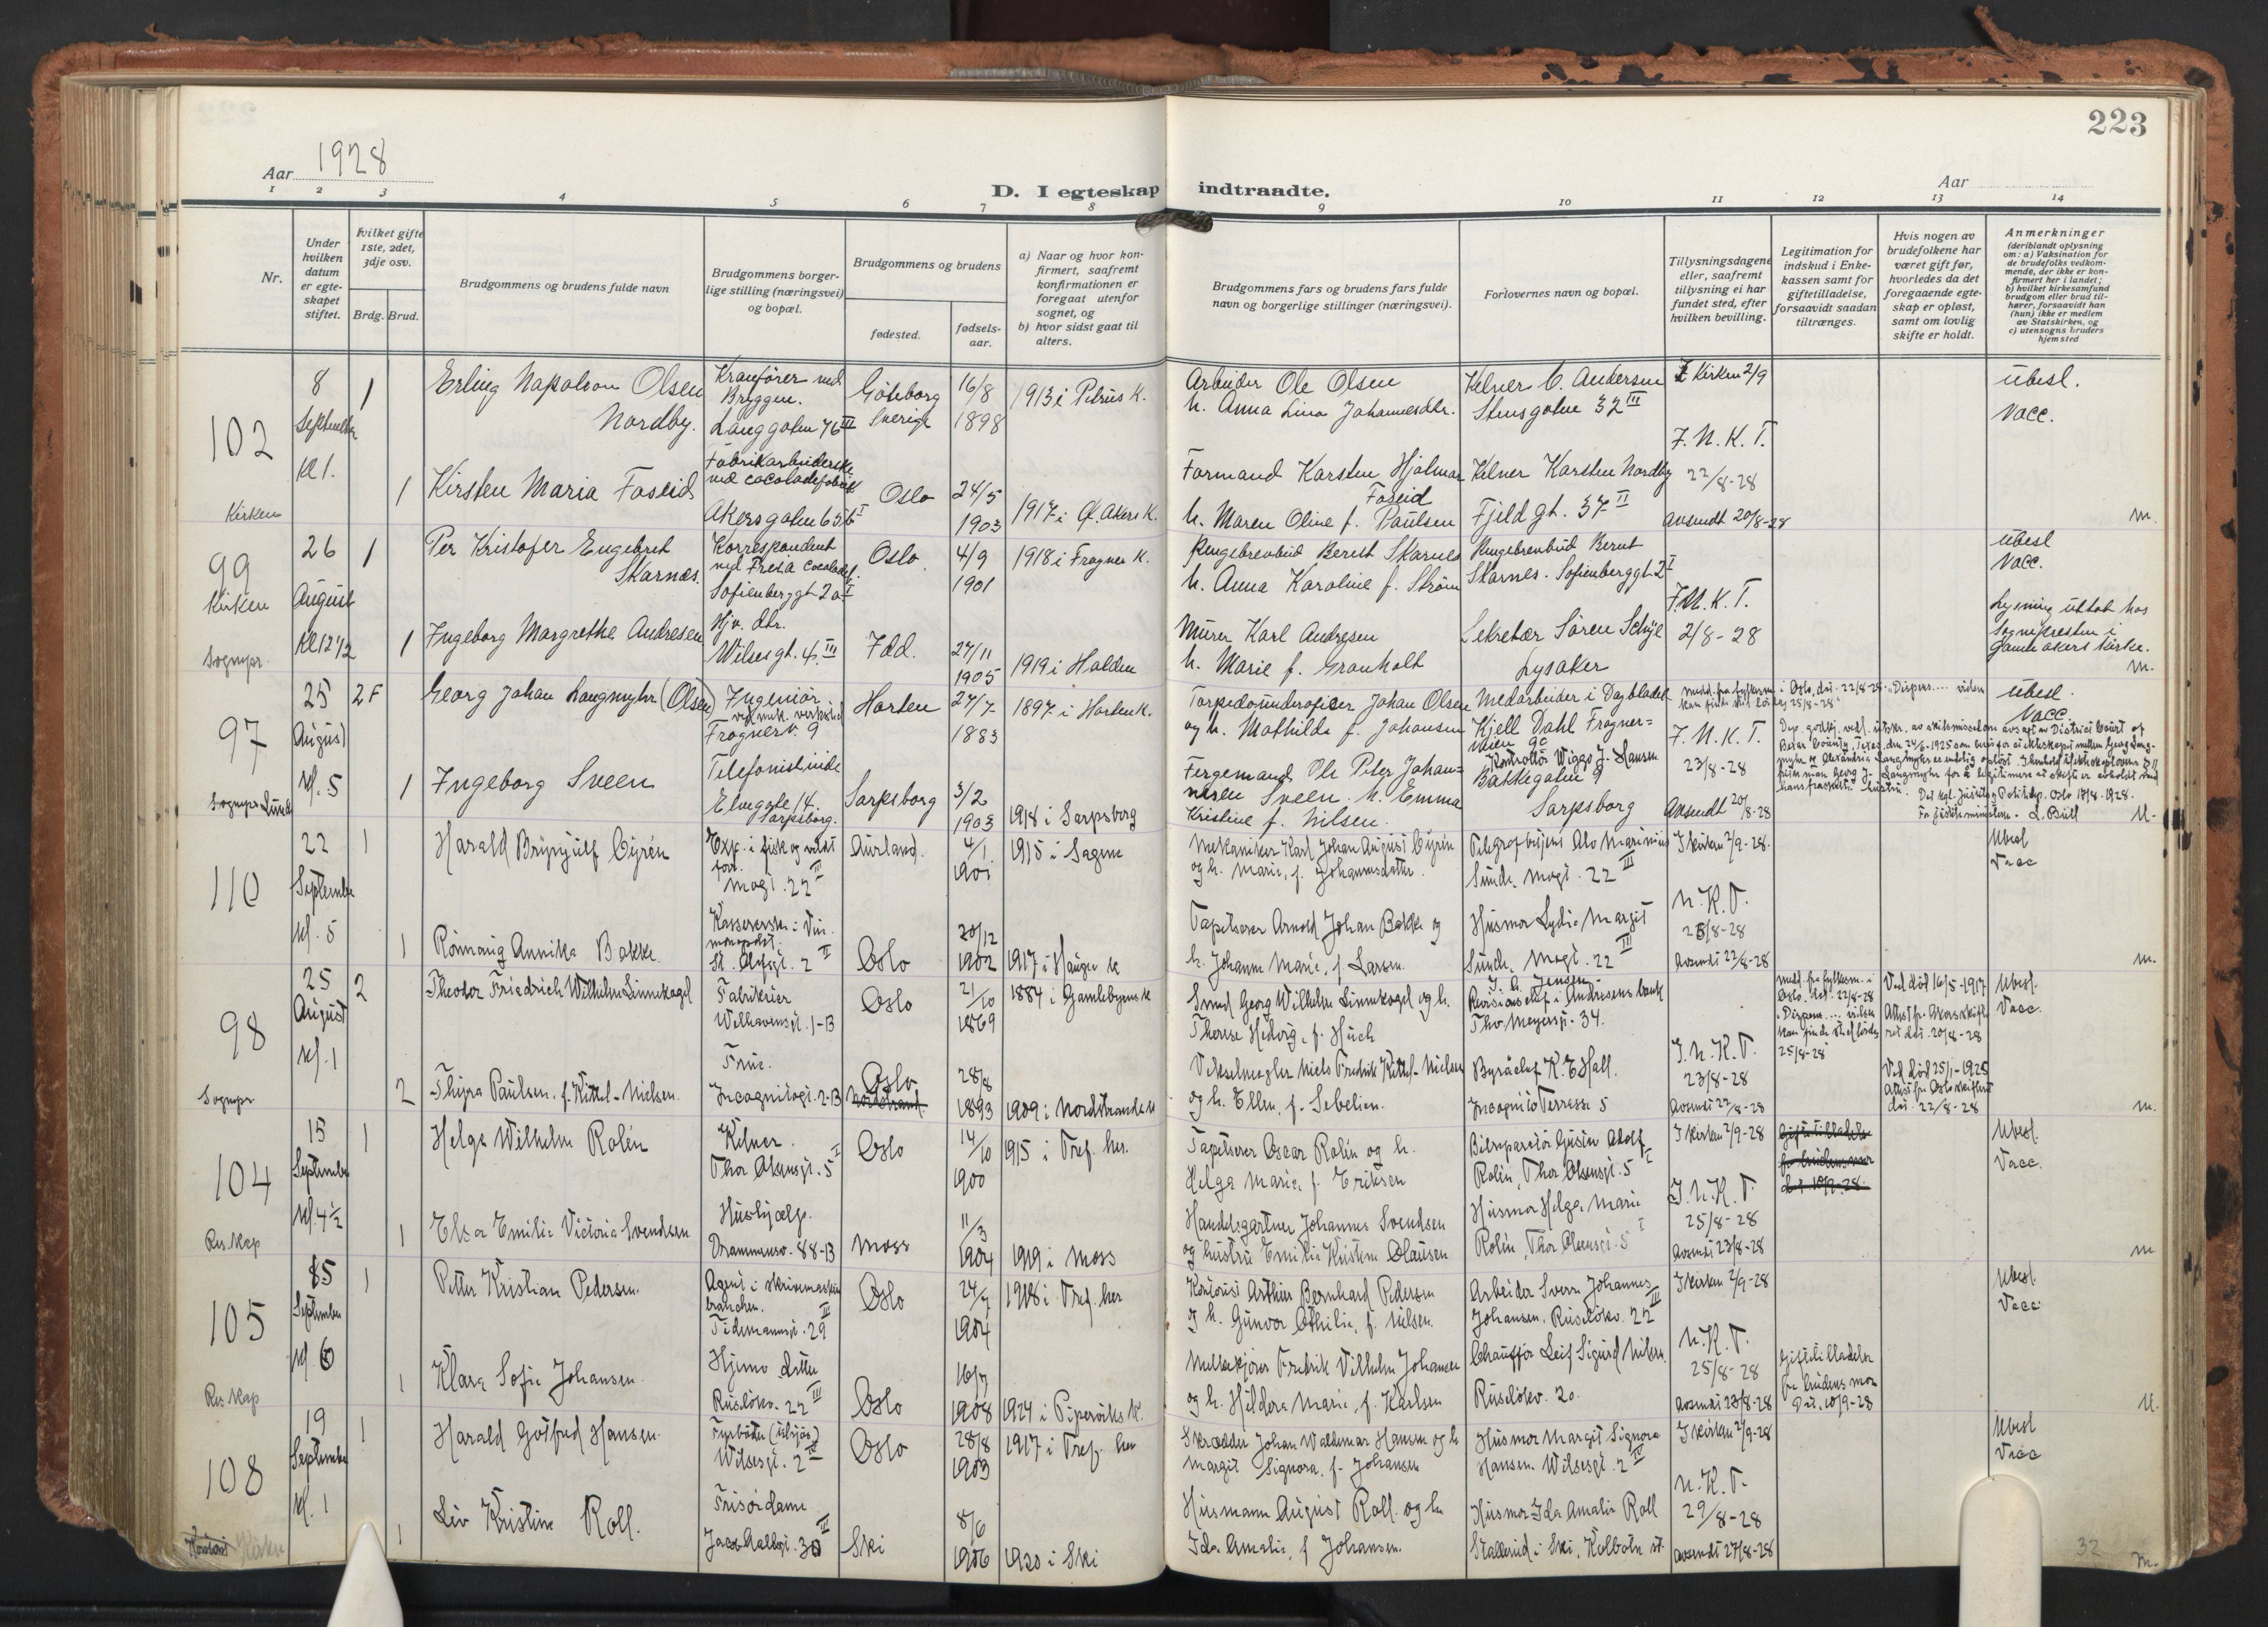 223
Aar 1928
D. I egteskap indtraadte.
Aar
1 2 3 4 5 6 7 8 9 10 11 12 13 14
Nr.
Under hvilken datum er egteskapet stiftet.
Hvilket gifte 1ste, 2det, 3dje osv.
Brdg. Brud.
Brudgommens og brudens fulde navn
Brudgommens borgerlige stilling (næringsvei) og bopæl.
Brudgommens og brudens
fødested.
fødselsaar.
a) Naar og hvor konfirmert, saafremt konfirmationen er foregaat utenfor sognet, og
b) hvor sidst gaat til alters.
Brudgommens fars og brudens fars fulde navn og borgerlige stillinger (næringsvei).
Forlovernes navn og bopæl.
Tillysningsdagene eller, saafremt tillysning ei har fundet sted, efter hvilken bevilling.
Legitimation for indskud i Enkekassen samt for giftetilladelse, forsaavidt saadan tiltrænges.
Hvis nogen av brudefolkene har været gift før, hvorledes da det foregaaende egteskap er opløst, samt om lovlig skifte er holdt.
Anmerkninger
(deriblandt oplysning om: a) Vaksination for de brudefolks vedkommende, der ikke er konfirmert her i landet, b) hvilket kirkesamfund brudgom eller brud tilhører, forsaavidt han (hun) ikke er medlem av Statskirken, og c) utensogns bruders hjemsted
102
Kirken
8 September Kl 1.
1
Erling Napoleon Olsen Nordby.
Kranfører ved Bryggen.
Langgaten 76 III
Göteborg Sverige
16/8 1898
1913 i Petrus K.
Arbeider Ole Olsen
h. Anna Lina Johannesdtr.
Kelner C. Andersen
Stensgaten 32 III
I Kirken 2/9
F. N. K. T.
22/8-28
Avsendt 20/8-28
ubesl.
Vacc.
1
Kirsten Maria Foseid
Fabrikarbeiderske ved cocoladefabrik
Akersgaten 65 b I
Oslo
24/5 1903
1917 i Gl. Akers K.
Formand Karsten Hjalmar Foseid
h. Maren Oline f. Paulsen
Kelner Karsten Nordby
Fjeldgt. 37 II
m.
99
Kirken
Sognepr.
26 August Kl 12 1/2
1
Per Kristofer Engebret Skarnes.
Korrespondent ved Freia Cocoladef.
Sofienberggt 2a I
Oslo.
4/9 1901
1918 i Frogner K.
Pengebrevbud Bernt Skarnes
h. Anna Karoline f. Strøm
Pengebrevbud Bernt Skarnes. Sofienberggt. 2 I
F.N.K.T.
2/8-28
ubesl
Vacc.
Lysning uttat hos Sognepresten i Gamle Akers kirke.
m.
1
Ingeborg Margrethe Andresen
Hjv. dtr.
Wilsesgt. 4. III
Idd.
27/11 1905
1919 i Halden
Murer Karl Andresen
h. Marie f. Granholt
Sekretær Sören Schye
Lysaker
97
Sognepr. Lunde
25 August kl. 5
2F
Georg Johan Langmyhr (Olsen)
Ingeniør ved mek. verksted
Frognerv. 9
Horten
27/7 1883
1897 i Horten K.
Torpedounderoficer Johan Olsen
og h. Mathilde f. Johansen
Medarbeider i Dagbladet Kjell Dahl Frognerveien 9c
Kontrollör Wiggo J. Hansen
Bakkegaten 9
Sarpsborg
F. N. K. T.
23/8-28
Avsendt 20/8-28
ubesl.
Vacc.
1
Ingeborg Sveen
Telefonistinde
Elvegate 14. Sarpsborg.
Sarpsborg
3/2 1903
1918 i Sarpsborg
Fergemand Ole Peter Johannesen Sveen. h. Emma Kristine f. Nilsen.
Det kgl. Justis- og Politidep. Oslo 17/8-1928.
M.
110
22 September kl. 5
1
Harald Brynjulf Cyrén
Exp. i fisk og vildt forr.
Mogt. 22 III
Aurland.
4/1. 1901
1915 i Sagene
Mekaniker Karl Johan August Cyrén
og h. Marie, f. Johannesdatter.
Telegrafbetjent Alv Marinius Sunde, Mogt. 22 III
I kirken 2/9-28.
N. K. T.
25/8-28
Avsendt 22/8-28
Ubesl
Vacc
1
Rönnaug Annika Bakke.
Kassererske i Vinmonopolet.
St. Olafsgt. 2 II
Oslo
20/12 1902
1917 i Hauges K
Tapetserer Arnold Johan Bakke og
h. Johanne Marie, f. Larsen.
Husmor Lydia Margit Sunde, Mogt. 22 III
m.
98
Sognepr
25 August kl. 1
2
Theodor Friedrich Wilhelm Linnekogel
Fabrikeier
Welhavensgt. 1-B
Oslo
21/10 1869
1884 i Gamlebyens K
Smed Georg Wilhelm Linnekogel og h.
Therese Hedvig, f. Huch
J. A. Jensen
Revisionschef i Andresens bank
Thv. Meyersgt. 34.
I. N. K. T.
23/8-28
Avsendt 22/8-28
Medd. fra fylkesm. i Oslo, dat. 22/8-28
"Dispens.... vielsen kan finde sted lördag 25/8-28"
Ved död 16/5-1917
Attest fr. Akers skifteret dat. 20/8-28
Ved död 25/1-1925
Attest fr. Oslo skifterett dat. 22/8-28
Ubesl.
Vacc.
2
Thyra Paulsen, f. Kittel-Nielsen.
Frue.
Incognitogt. 2-B
Oslo
Nordstrand.
28/8 1893
1909 i Nordstrands K
Vekselmegler Niels Fredrik Kittel-Nielsen
og h. Ellen, f. Sebelien.
Byråchef K. E. Hall.
Incognito Terrasse 5
m.
104
Res. Kap
15 September kl. 4 1/2
1
Helge Wilhelm Rolén
Kelner.
Thor Olsensgt. 5 I
Oslo
14/10 1900
1915 i Tref. her.
Tapetserer Oscar Rolén og h.
Helga Marie f. Eriksen
Bilreparatör Gustav Adolf Rolén, Thor Olsensgt. 5 I
I kirken 2/9-28
I. N. K. T.
25/8-28
Avsendt 23/8-28
Giftetilladelse fra brudens mor dat. 10/9-28.
Ubesl.
Vacc.
1
Elsa Emilie Victoria Svendsen
Hushjælp.
Drammensv. 88-B
Moss
11/3 1904
1919 i Moss
Handelsgartner Johannes Svendsen
og hustru Emilie Kristine Olausen
Husmor Helga Marie Rolén, Thor Olsensgt. 5 I
m
105
Res. Kap
15 September kl. 6
1
Petter Kristian Pedersen.
Agent i skrivemaskinbranchen.
Tidemannsgt. 29 III
Oslo
24/7 1904
1918 i Tref. her
Kontorist Arthur Bernhard Pedersen
og h. Gunvor Othilie, f. Nilsen.
Arbeider Sverre Johannes Johansen, Ruselökv. 22 III
I kirken 2/9-28
N. K. T.
25/8-28
Avsendt 23/8-28
Giftetilladelse fra brudens mor Dat. 10/9-28
Ubesl.
Vacc.
1
Klara Sofie Johansen.
Hjemv. datter
Ruselökv. 22 III
Oslo
16/7 1908
1924 i Pipervikens K.
Melkekjører Fredrik Vilhelm Johansen
og h. Hildora Marie, f. Karlsen
Chauffør Leif Sigurd Nilsen.
Ruselökv. 20.
M.
108
Kirken
19 September kl. 1
1
Harald Gotfred Hansen.
Fyrböter (tilsjös)
Wilsesgt. 2 IV
Oslo
28/8 1903
1917 i Tref. her
Skrædder Johan Waldemar Hansen og h
Margit Signora, f. Johansen
Husmor Margit Signora Hansen. Wilsesgt. 2 IV
I kirken 2/9-28
N. K. T.
29/8-28
Avsendt 27/8-28
Ubesl
Vacc
1
Liv Kristine Roll.
Frisördame
Jacob Aallsgt. 30 III
Ski
8/6 1906
1920 i Ski
Husmann August Roll. og h
Ida Amalie, f Johansen.
Husmor Ida Amalie Roll
Stallerud i Ski, Kolbotn st.
32
m.